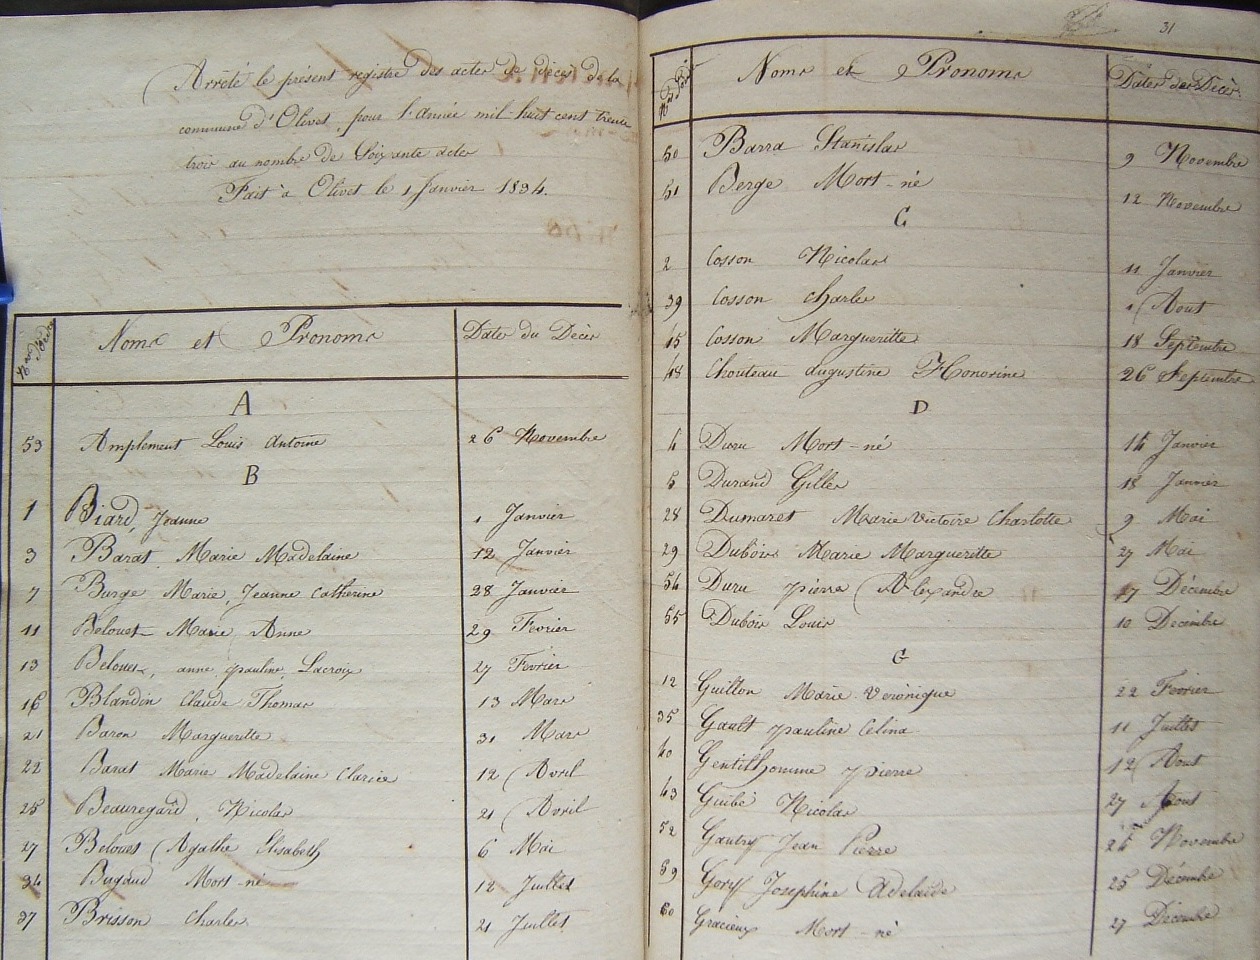 Arrêté le présent registre des actes de décès de la
commune d'Olivet, pour l'année mil huit cent trente
trois au nombre de Soixante actes
Fait à Olivet le 1 Janvier 1834.
Nos d'ordre Noms et Pronoms Dates du Décès
A
53 Amplement Louis Antoine 26 Novembre
B
1 Biard, Jeanne 1 Janvier
3 Barat Marie Madelaine 12 Janvier
7 Burge Marie Jeanne Catherine 28 Janvier
11 Belouet Marie Anne 29 Fevrier
13 Belouet, anne pauline Lacroix 27 Fevrier
16 Blandin Claude Thomas 13 Mars
21 Baron Marguerite 31 Mars
22 Barat Marie Madelaine Clarice 12 Avril
25 Beauregard, Nicolas 21 Avril
27 Belouet Agathe Elisabeth 6 Mai
34 Bugaud Mort-né 12 Juillet
37 Brisson Charles 21 Juillet
31
Nos d'ordre Noms et Pronoms Dates des Décès
50 Barra Stanislas 9 Novembre
51 Berge Mort-né 12 Novembre
C
2 Cosson Nicolas 11 Janvier
39 Cosson Charles 1 Aout
45 Cosson Margueritte 18 Septembre
48 Chouteau Augustine Honorine 26 Septembre
D
4 Duru Mort-né 14 Janvier
6 Durand Gilles 18 Janvier
28 Dumaret Marie Victoire Charlotte 9 Mai
29 Dubois Marie Margueritte 27 Mai
54 Duru pierre Alexandre 17 Décembre
55 Dubois Louis 10 Décembre
G
12 Guillon Marie Veronique 22 Fevrier
35 Gault pauline Celina 11 Juillet
40 Gentilhomme pierre 12 Aout
43 Guibé Nicolas 27 Aout
52 Gautry Jean Pierre 24 Novembre
59 Gory Josephine Adelaïde 25 Décembre
60 Gracieux Mort-né 27 Décembre